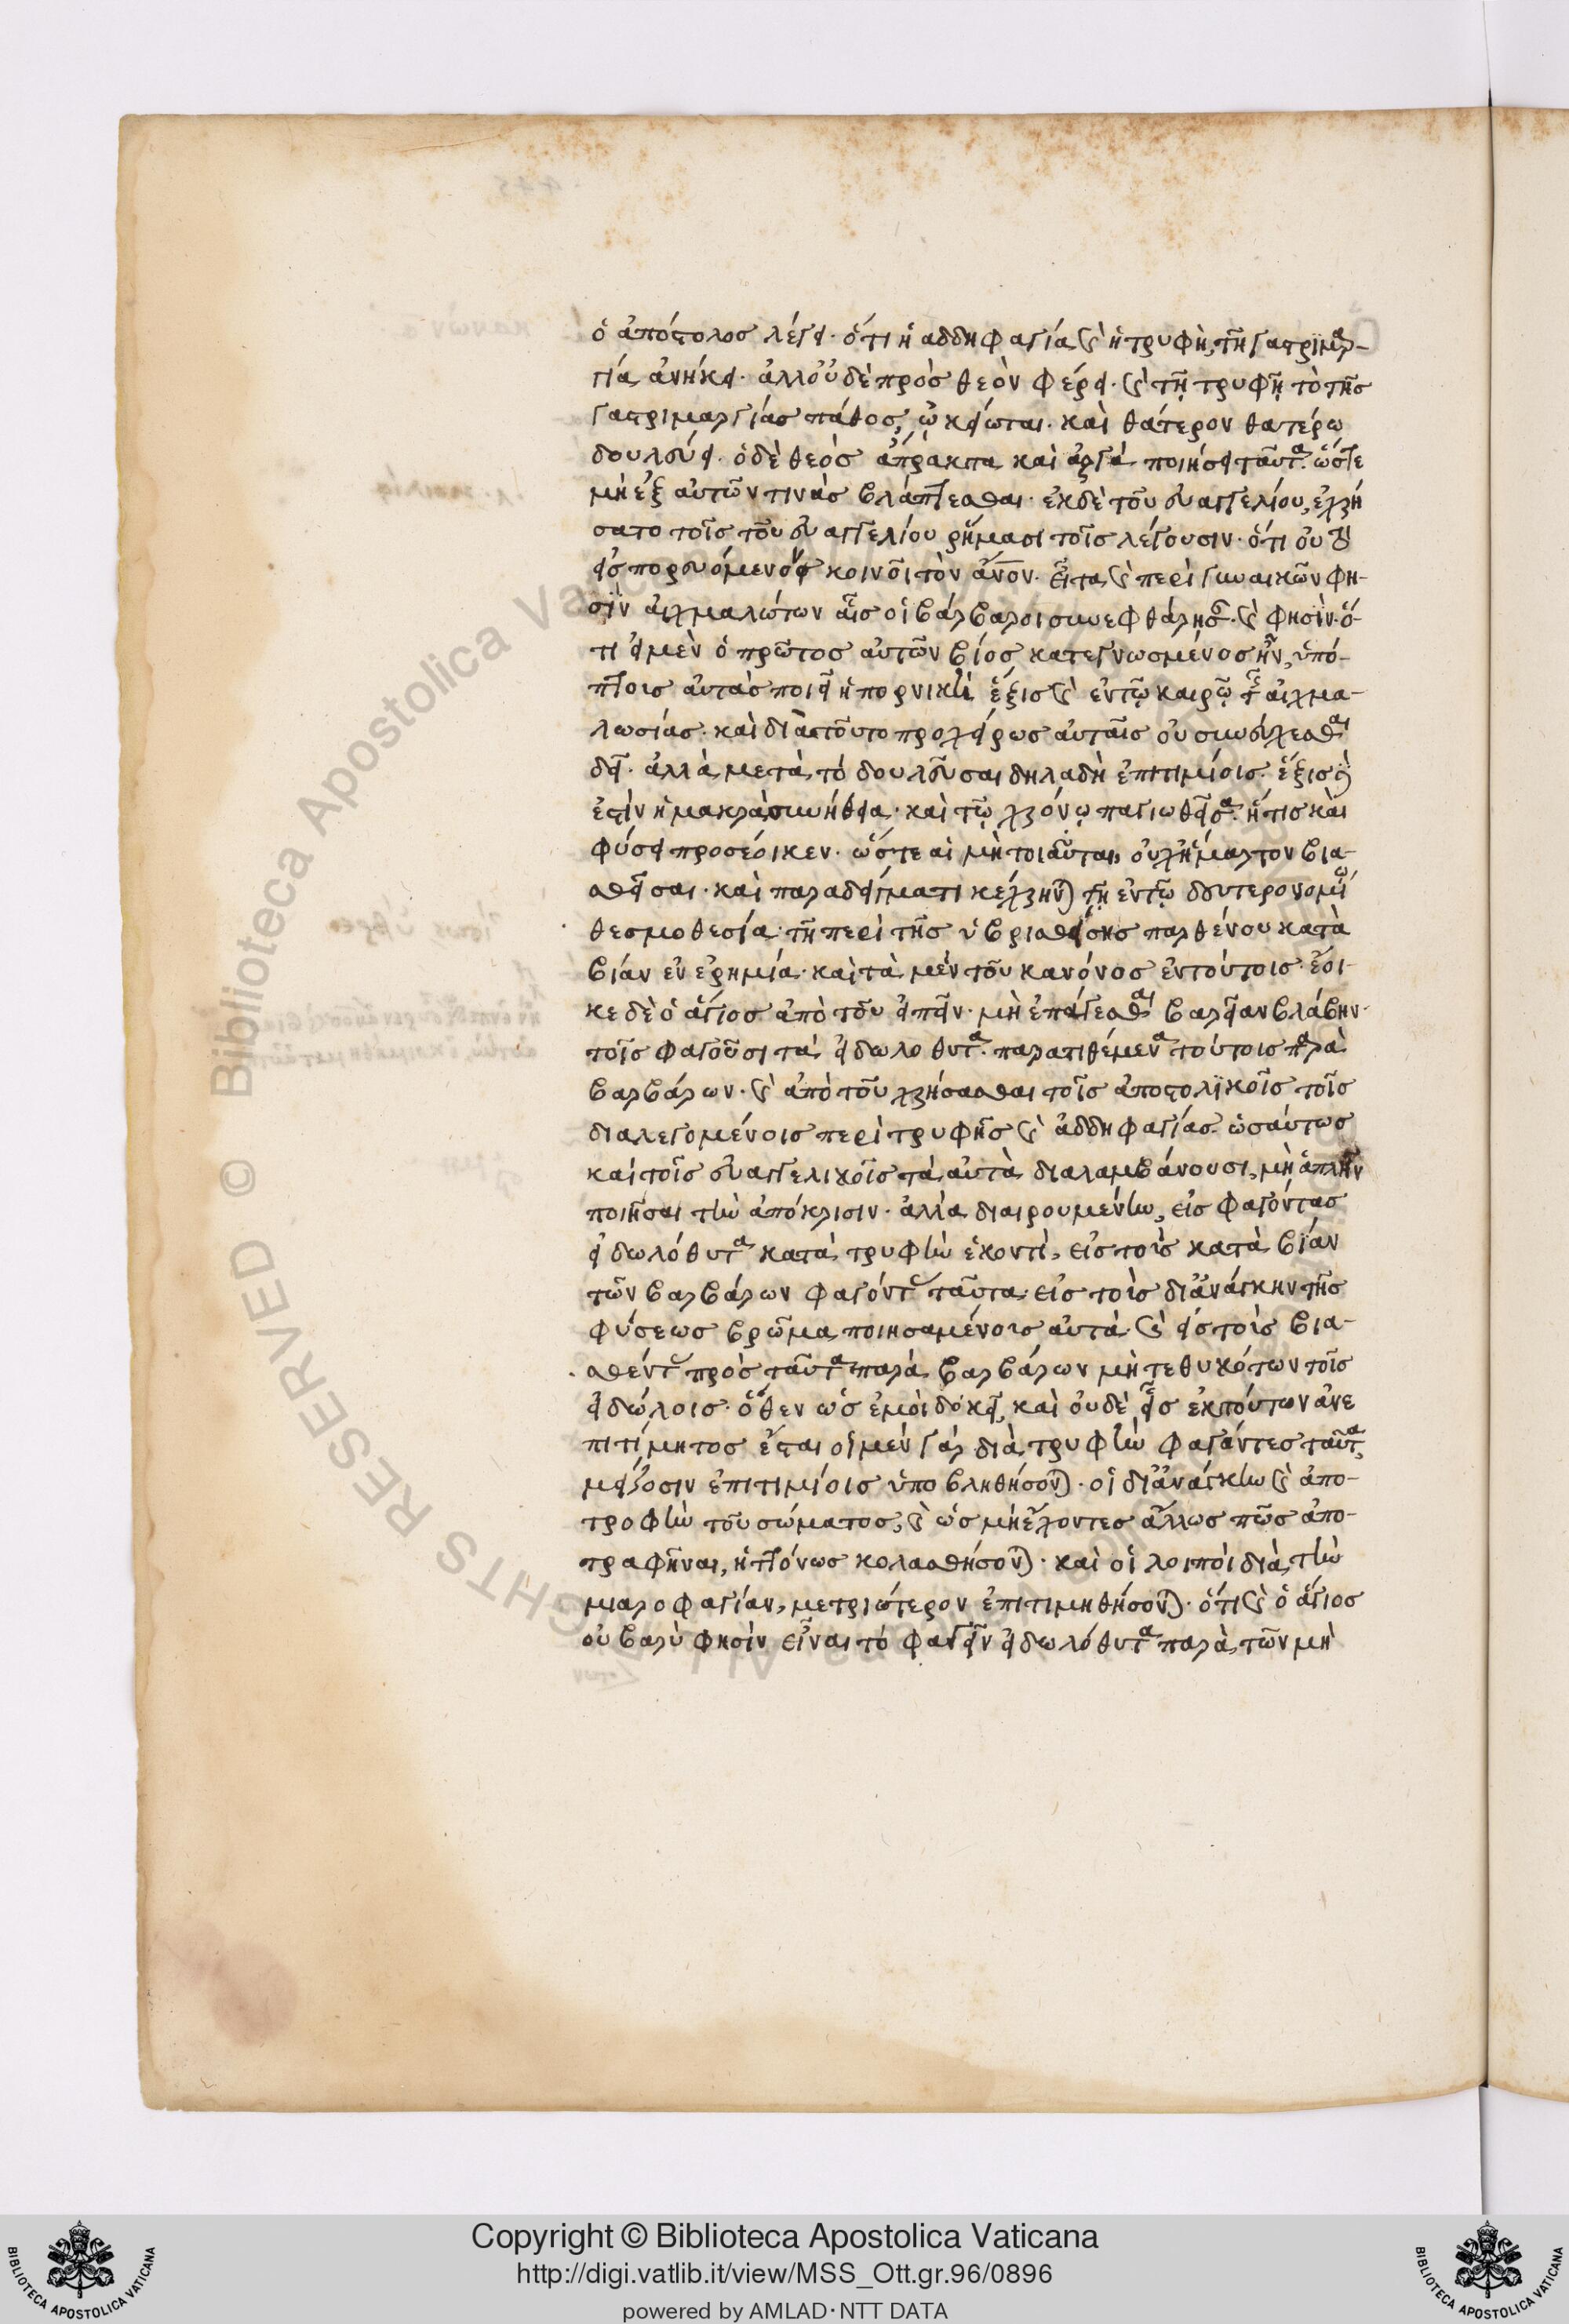 ὁ ἀπόστολος λέγει· ὅτι ἡ αδδηφαγία καὶ ἡ τρυφὴ, τῆ γαστριμαρ-
γία ἀνήκει· ἀλλ' οὐδὲ πρὸς θεὸν φέρει· καὶ τῇ τρυφῇ τὸ τῆς
γαστριμαργίας πάθος, ὠκείωται· καὶ θάτερον θατέρω
δουλεύει· ὁ δὲ θεὸς ἄπρακτα καὶ ἀργὰ ποιήσει ταῦτα· ὥστε
μὴ ἐξ αὐτῶν τινὰς βλάπτεσθαι· ἐκ δὲ τοῦ εὐαγγελίου, ἐχρή
σατο τοῖς τοῦ εὐαγγελίου ῥήμασι τοῖς λέγουσιν· ὅτι οὐ τὸ
εἰσπορευόμενον κοινοῖ τὸν ἄνον· εἶτα καὶ περὶ γυναικῶν φη-
σὶν αἰχμαλώτων αἷς οἱ βάρβαροι συνεφθάρησαν· καὶ φησὶν· ὅ-
τι εἰ μὲν ὁ πρῶτος αὐτῶν βίος κατεγνωσμένος ἦν, ὑπό-
πτοις αὐτὰς ποιεῖ ἡ πορνικὴ ἕξις καὶ ἐν τῷ καιρῷ τῆς αἰχμα-
λωσίας· καὶ διὰ τοῦτο προχείρως αὐταῖς οὐ συνεύχεσθαι
δεῖ· ἀλλὰ μετὰ τὸ δουλεῦσαι δηλαδὴ ἐπιτιμίοις· ἕξις δὲ
ἐστὶν ἡ μακρὰ συνήθεια· καὶ τῷ χρόνῳ παγιωθεῖσα· ἥτις καὶ
φύσει προσέοικεν· ὥστε αἱ μὴ τοιαῦται, οὐχ ἥμαρτον βια-
σθεῖσαι· καὶ παραδείγματι κέχρηνται τῇ ἐν τῷ δευτερονομίω
θεσμοθεσία· τῆ περὶ τῆς ὑβρισθείσης παρθένου κατὰ
βίαν ἐν ἐρημία· καὶ τὰ μὲν τοῦ κανόνος ἐν τούτοις· ἔοι-
κε δὲ ὁ ἅγιος ἀπὸ τοῦ εἰπεῖν· μὴ ἐπάγεσθαι βαρεῖαν βλάβην·
τοῖς φαγοῦσι τὰ εἰδωλοθυτα· παρατιθέμενα τούτοις παρὰ
βαρβάρων· καὶ ἀπὸ τοῦ χρήσασθαι τοῖς ἀποστολικοῖς τοῖς
διαλεγομένοις περὶ τρυφῆς καὶ ἀδδηφαγίας· ὡσαύτως
καὶ τοῖς εὐαγγελικοῖς τὰ αὐτὰ διαλαμβάνουσι, μὴ ἁπλῆν
ποιῆσαι τὴν ἀπόκρισιν· ἀλλὰ διαιρουμένην, εἰς φαγόντας
εἰδωλόθυτα κατὰ τρυφὴν ἑκοντὶ, εἰς τοὺς κατὰ βίαν
τῶν βαρβάρων φαγόντας ταῦτα· εἰς τοὺς δι' ἀνάγκην τῆς
φύσεως βρῶμα ποιησαμένους αὐτὰ· καὶ εἰς τοὺς βια-
σθέντας πρὸς ταῦτα παρὰ βαρβάρων μὴ τεθυκότων τοῖς
εἰδώλοις· ὅθεν ὡς ἐμοὶ δοκεῖ, καὶ οὐδὲ εἷς ἐκ τούτων ἀνε
πιτίμητος ἔσται οἱ μὲν γὰρ διὰ τρυφὴν φαγόντες ταῦτα,
μείζοσιν ἐπιτιμίοις ὑποβληθήσονται· οἱ δι' ἀνάγκην καὶ ἀπο-
τροφὴν τοῦ σώματος, καὶ ὡς μὴ ἔχοντες ἄλλως πῶς ἀπο-
τραφῆναι, ἡττόνως κολασθήσονται· καὶ οἱ λοιποὶ διὰ τὴν
μιαροφαγίαν, μετριώτερον ἐπιτιμηθήσονται· ὅτι καὶ ὁ ἅγιος
οὐ βαρὺ φησὶν εἶναι τὸ φαγεῖν εἰδωλόθυτα παρὰ τῶν μὴ
Copyright © Biblioteca Apostolica Vaticana
http://digi.vatlib.it/view/MSS_Ott.gr.96/0896
powered by AMLAD·NTT DATA